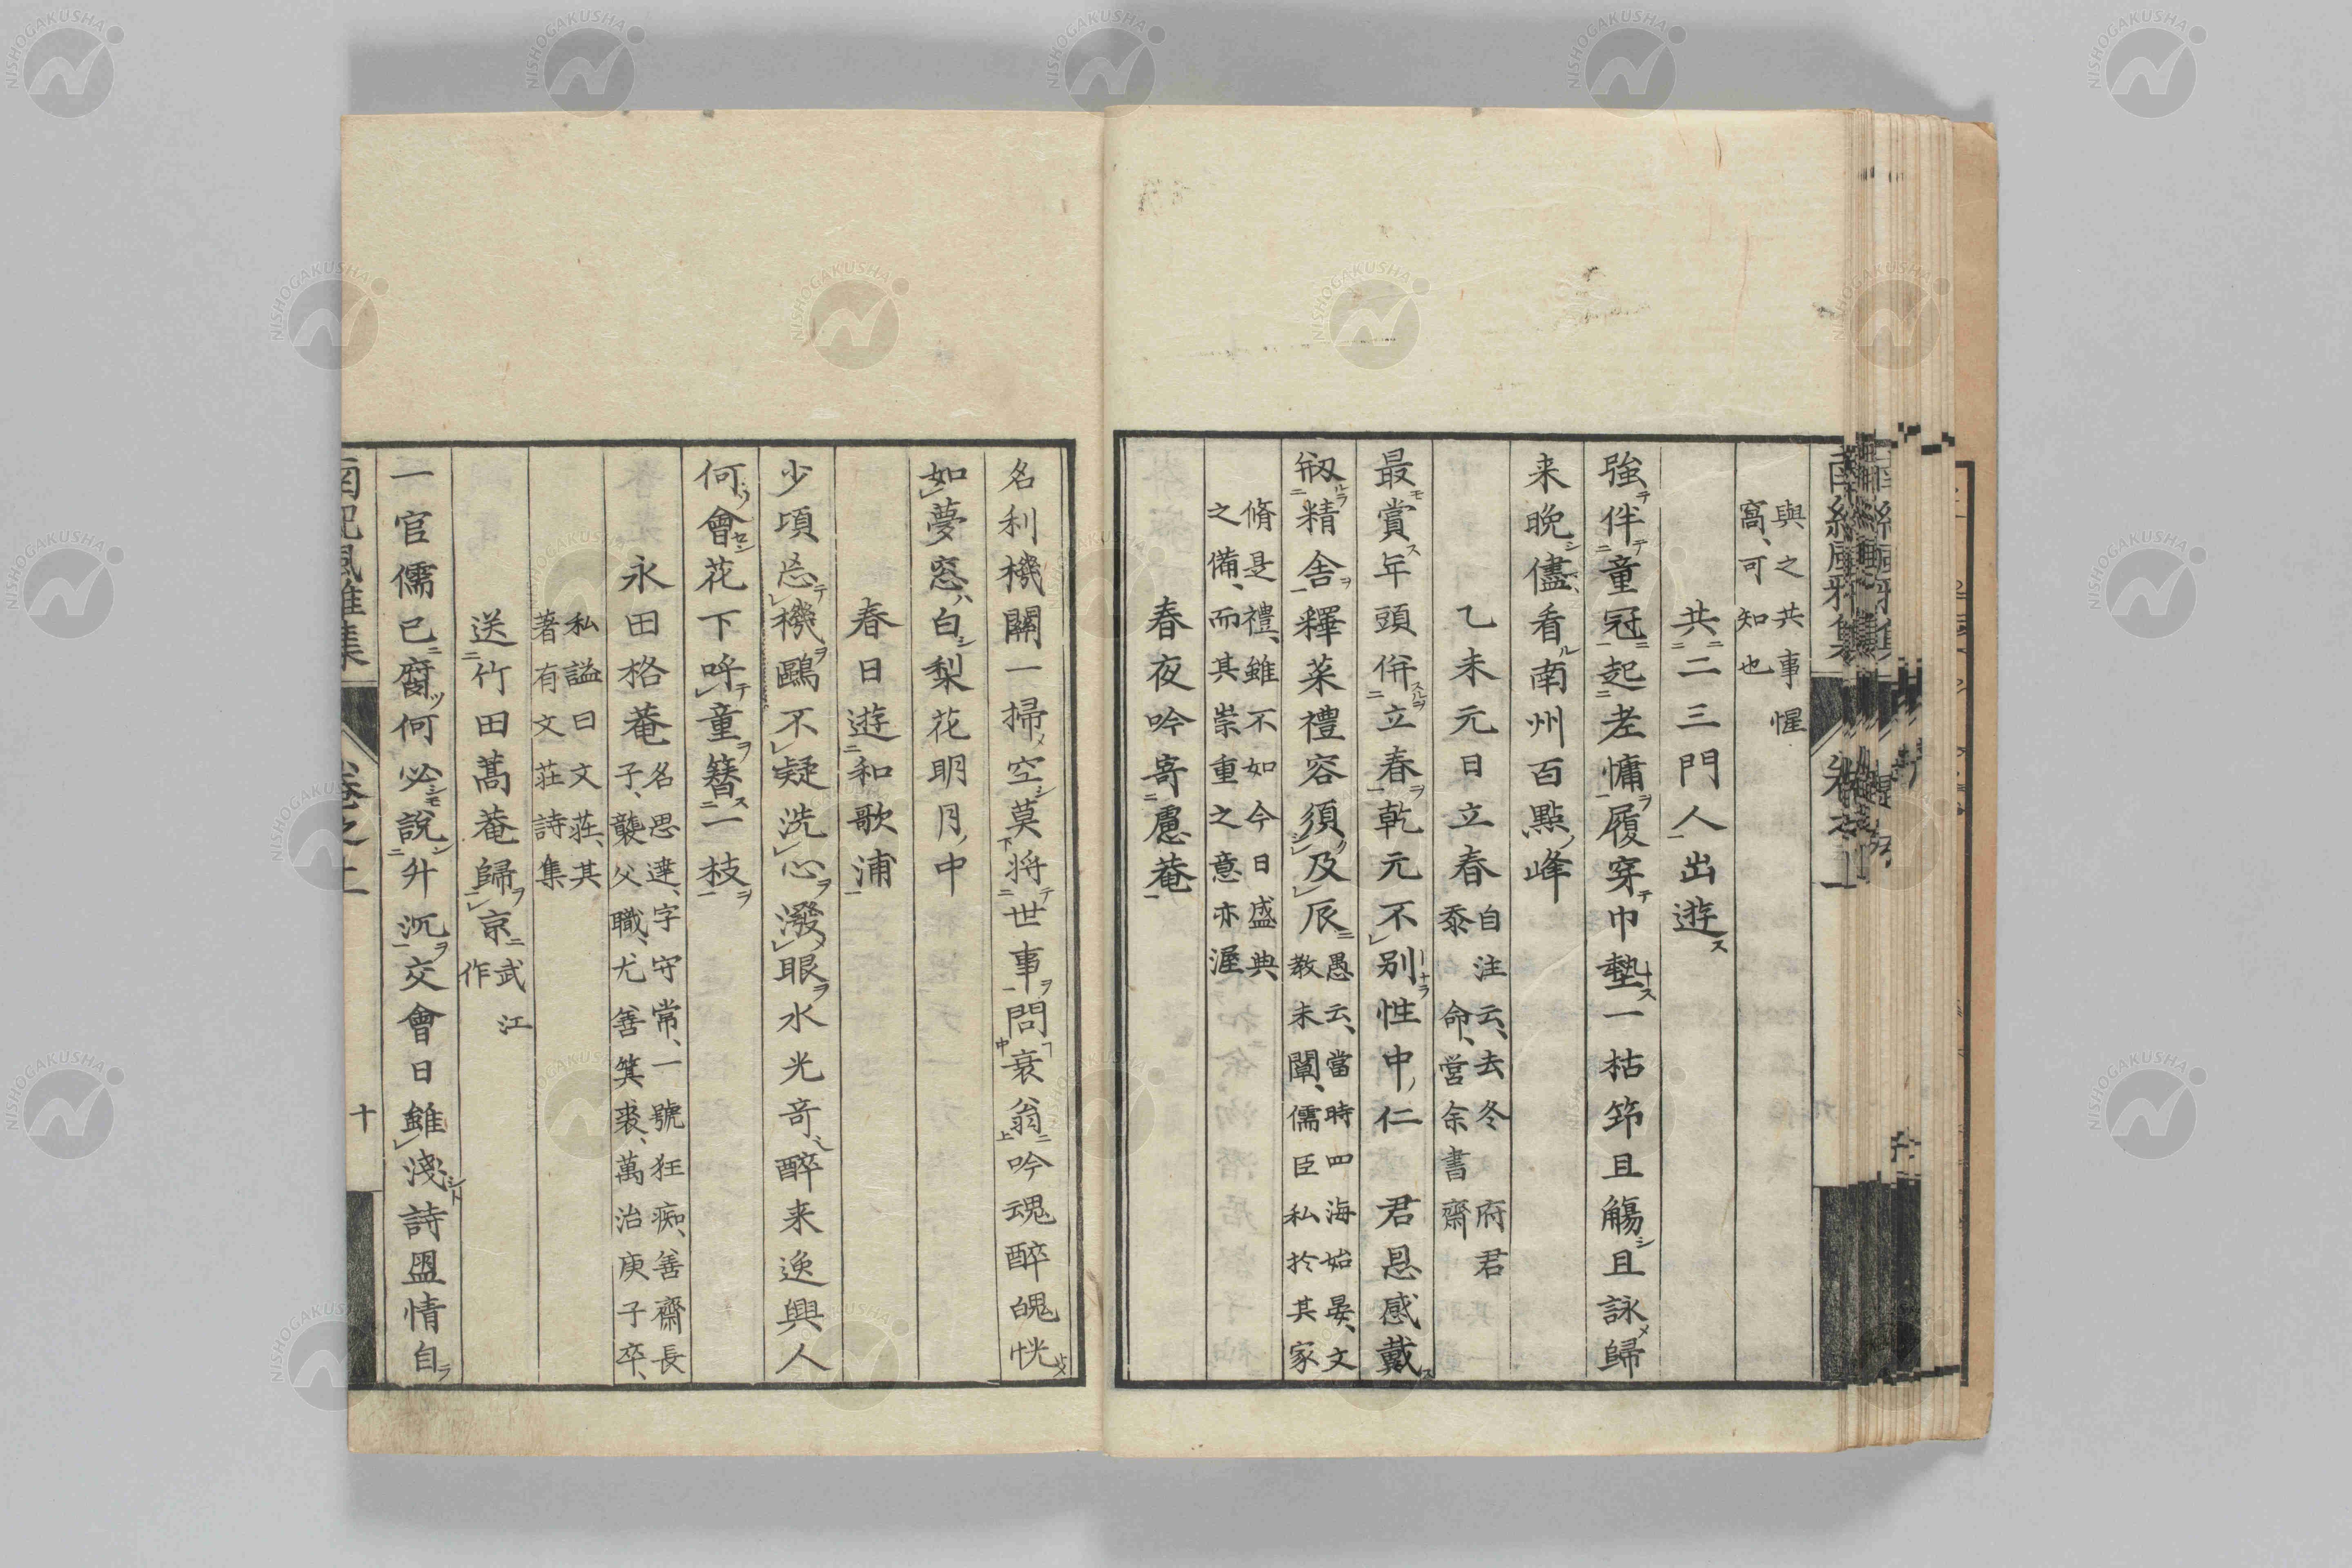 與之共事惺
窩、可知也
共二三門人出遊
強伴童冠起老慵履穿巾墊一枯笻且觴且詠歸
来晩儘看南州百點峰
乙未元日立春
自注云、去冬府君
命、営余書齋
最賞年頭併立春乾元不別性中仁君恩感戴
精舎釋菜禮容須及辰
愚云、當時四海始晏、文
教未闡、儒臣私於其家
脩是禮、雖不如今日盛典
之備、而其崇重之意亦渥
春夜吟寄慮菴
名利機關一掃空莫将世事問衰翁吟魂醉魄恍
如夢窓白梨花明月中
春日遊和歌浦
少頃忘機鷗不疑洗心潑眼水光奇醉来逸興人
何會花下呼童簪一枝
永田格菴
名思達、字守常、一號狂痴、善齋長
子、襲父職、尤善箕裘、萬治庚子卒、
私謚曰文荘、其
著有文荘詩集
送竹田蒿菴歸京
武江
作
一官儒已腐何必說升沉交會日雖淺詩盟情自
南紀風雅集
卷之上
十
NISHOGAKUSHA